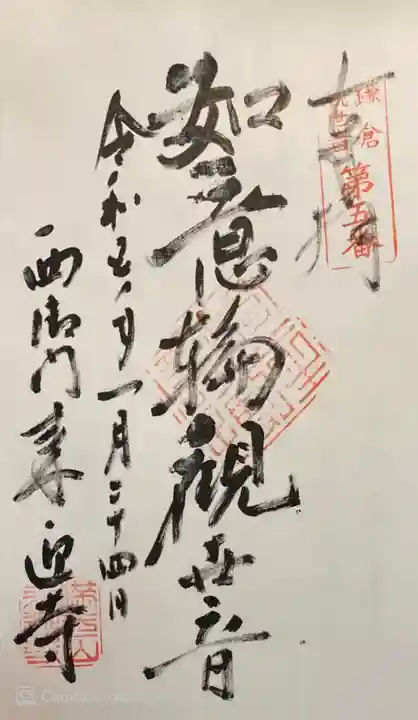 奉拝
鎌倉
観世音
第五番
如意輪観世音
令和五年一月二十四日
西御門 来迎寺
CS CamScanner